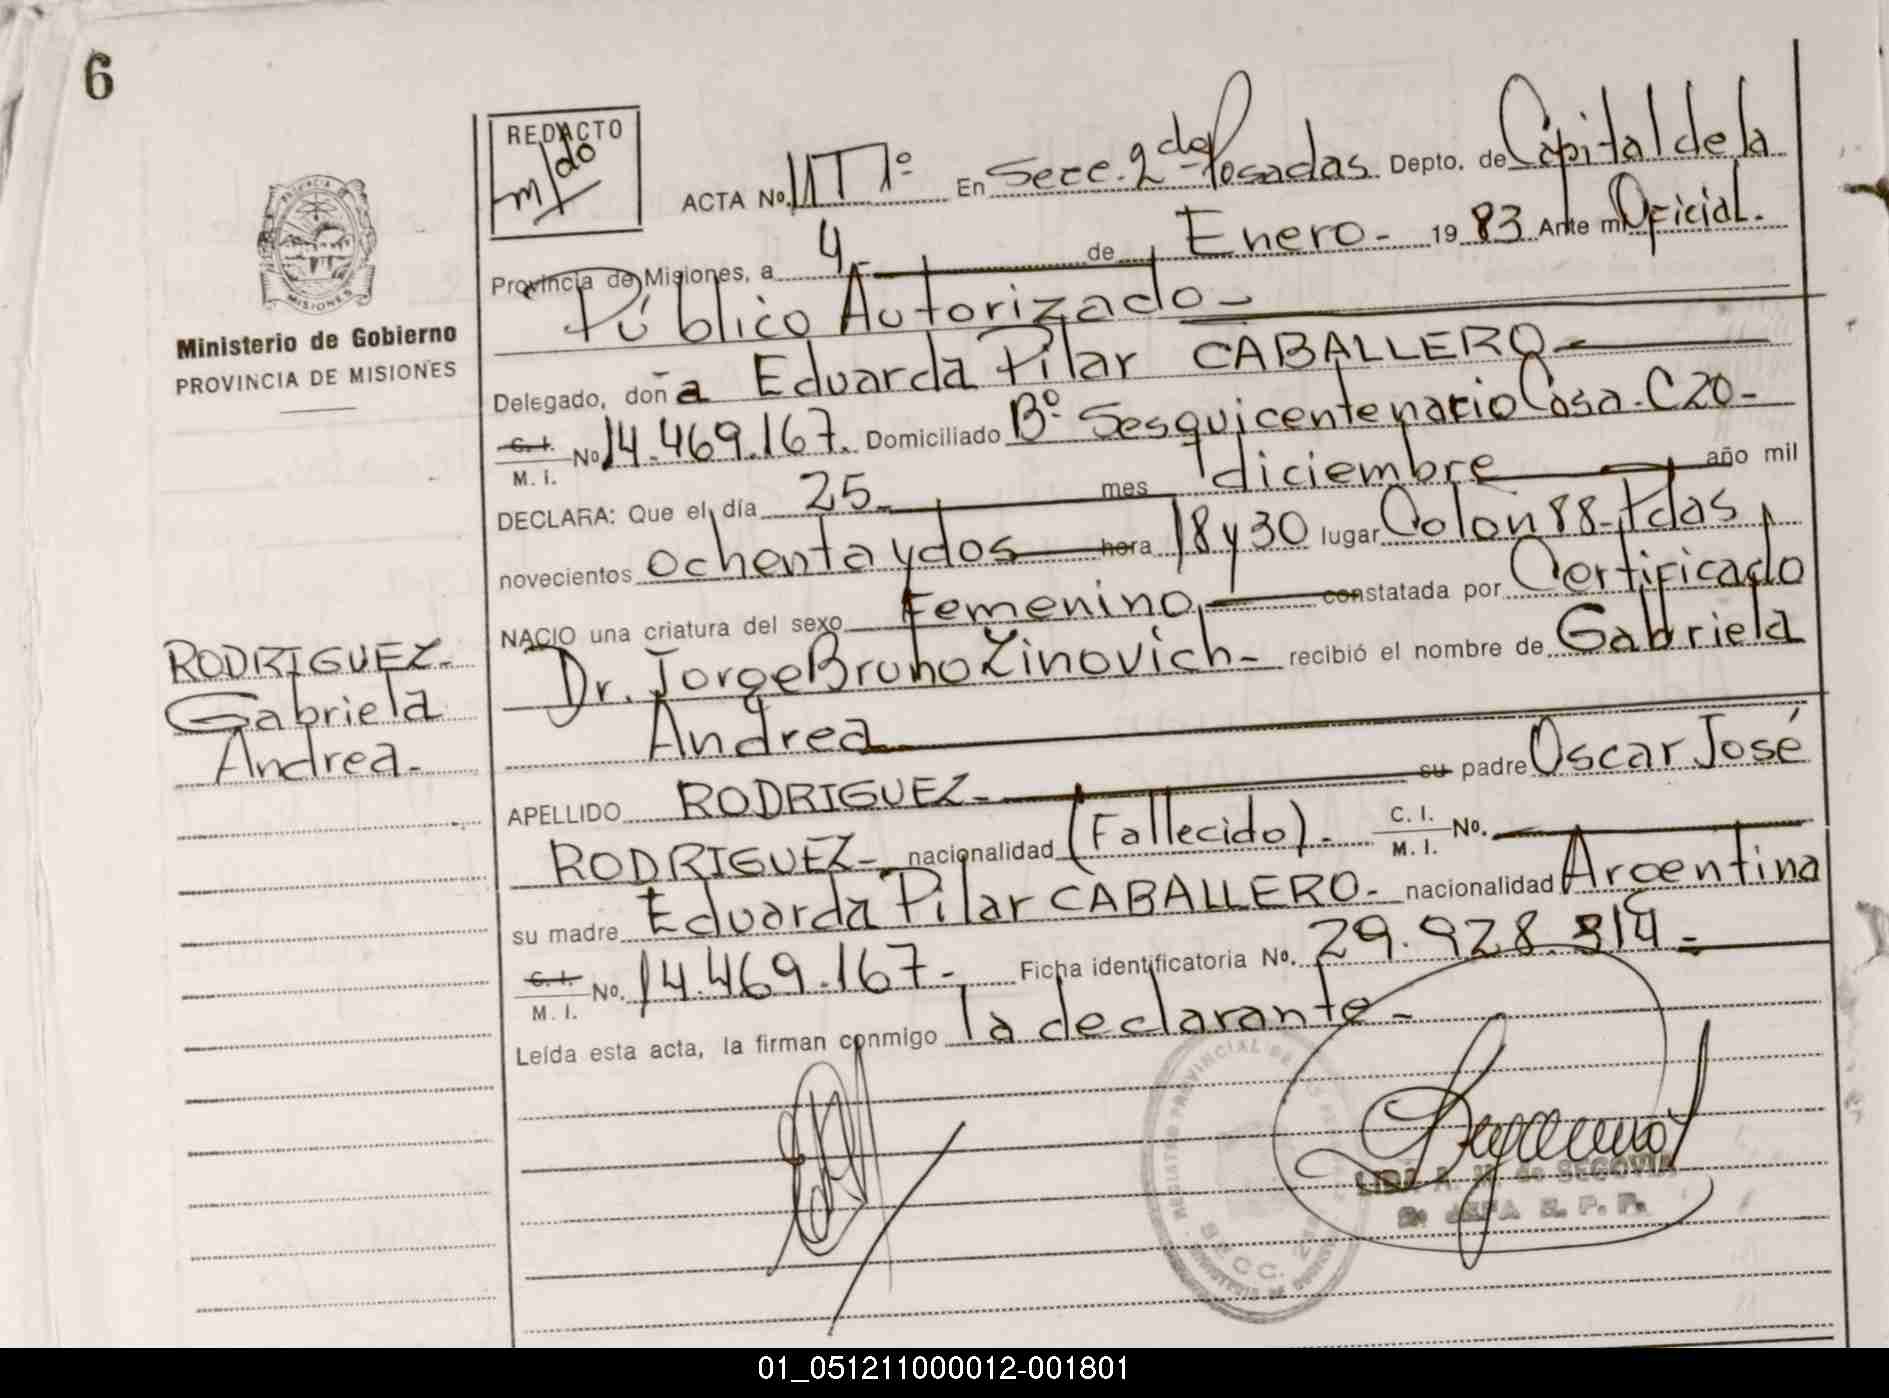 6
REDACTO
ACTA No. En Secc. 2da Posadas Depto. de Capital de la
Provincia de Misiones, a 4 de Enero - 19 83 Ante mi Oficial.
Público Autorizado -
MISIONES
Ministerio de Gobierno
PROVINCIA DE MISIONES
Delegado, doña Eduarda Pilar CABALLERO -
C. I.
M. I. No 14.469.167. Domiciliado Bº Sesquicentenario Casa - C20 -
DECLARA: Que el día 25 - mes diciembre año mil
novecientos ochenta y dos hora 18 y 30 lugar Colón 88 - Pdas
NACIO una criatura del sexo Femenino, constatada por Certificado
Dr. Jorge Bruno Zinovich - recibió el nombre de Gabriela
Andrea
RODRIGUEZ -
Gabriela
Andrea -
APELLIDO RODRIGUEZ - su padre Oscar José
RODRIGUEZ - nacionalidad (Fallecido) - C. I.
M. I. No.
su madre Eduarda Pilar CABALLERO - nacionalidad Argentina
C. I.
M. I. No. 14.469.167 - Ficha identificatoria No. 29.928.314 -
Leída esta acta, la firman conmigo la declarante -
de SEGOVIA
JEFA
SECC.
01_051211000012-001801